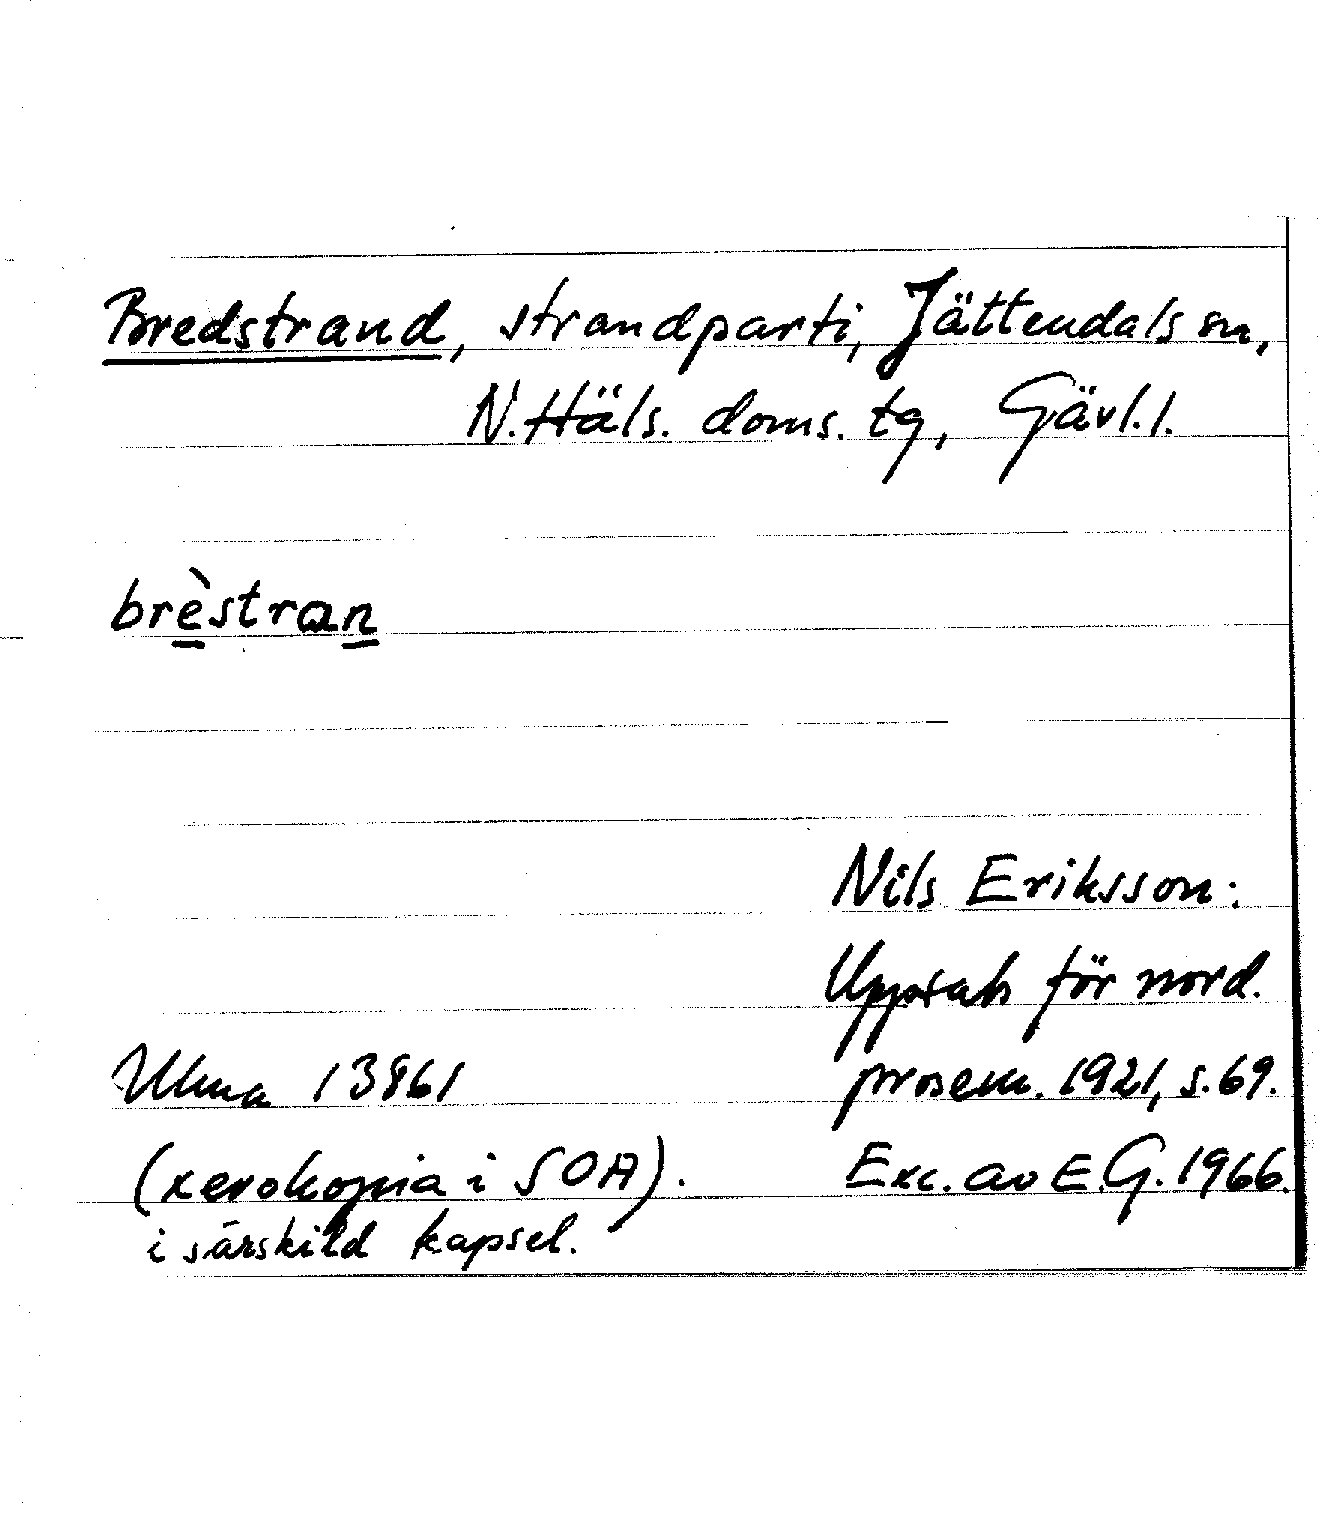 Bredstrand, strandparti, Jättendals sn,
N. Häls. doms. tg, Gävl. l.
brèstran
Nils Eriksson:
Uppsats för nord.
Ulma 13861 prosem. 1921, s. 69.
(xerokopia i SOA). Exc. av E.G. 1966.
i särskild kapsel.